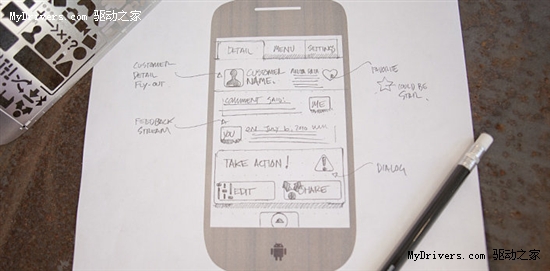 MyDrivers.com 驱动之家
DETAIL
MENU
SETTINGS
CUSTOMER
DETAIL
FLY-OUT
CUSTOMER
NAME.
FAVORITE
COULD BE
STAR.
COMMENT
ME
FEEDBACK
STREAM
YOU
ON JULY 6,
TAKE ACTION!
DIALOG
EDIT
SHARE
MyDrivers.com 驱动之家